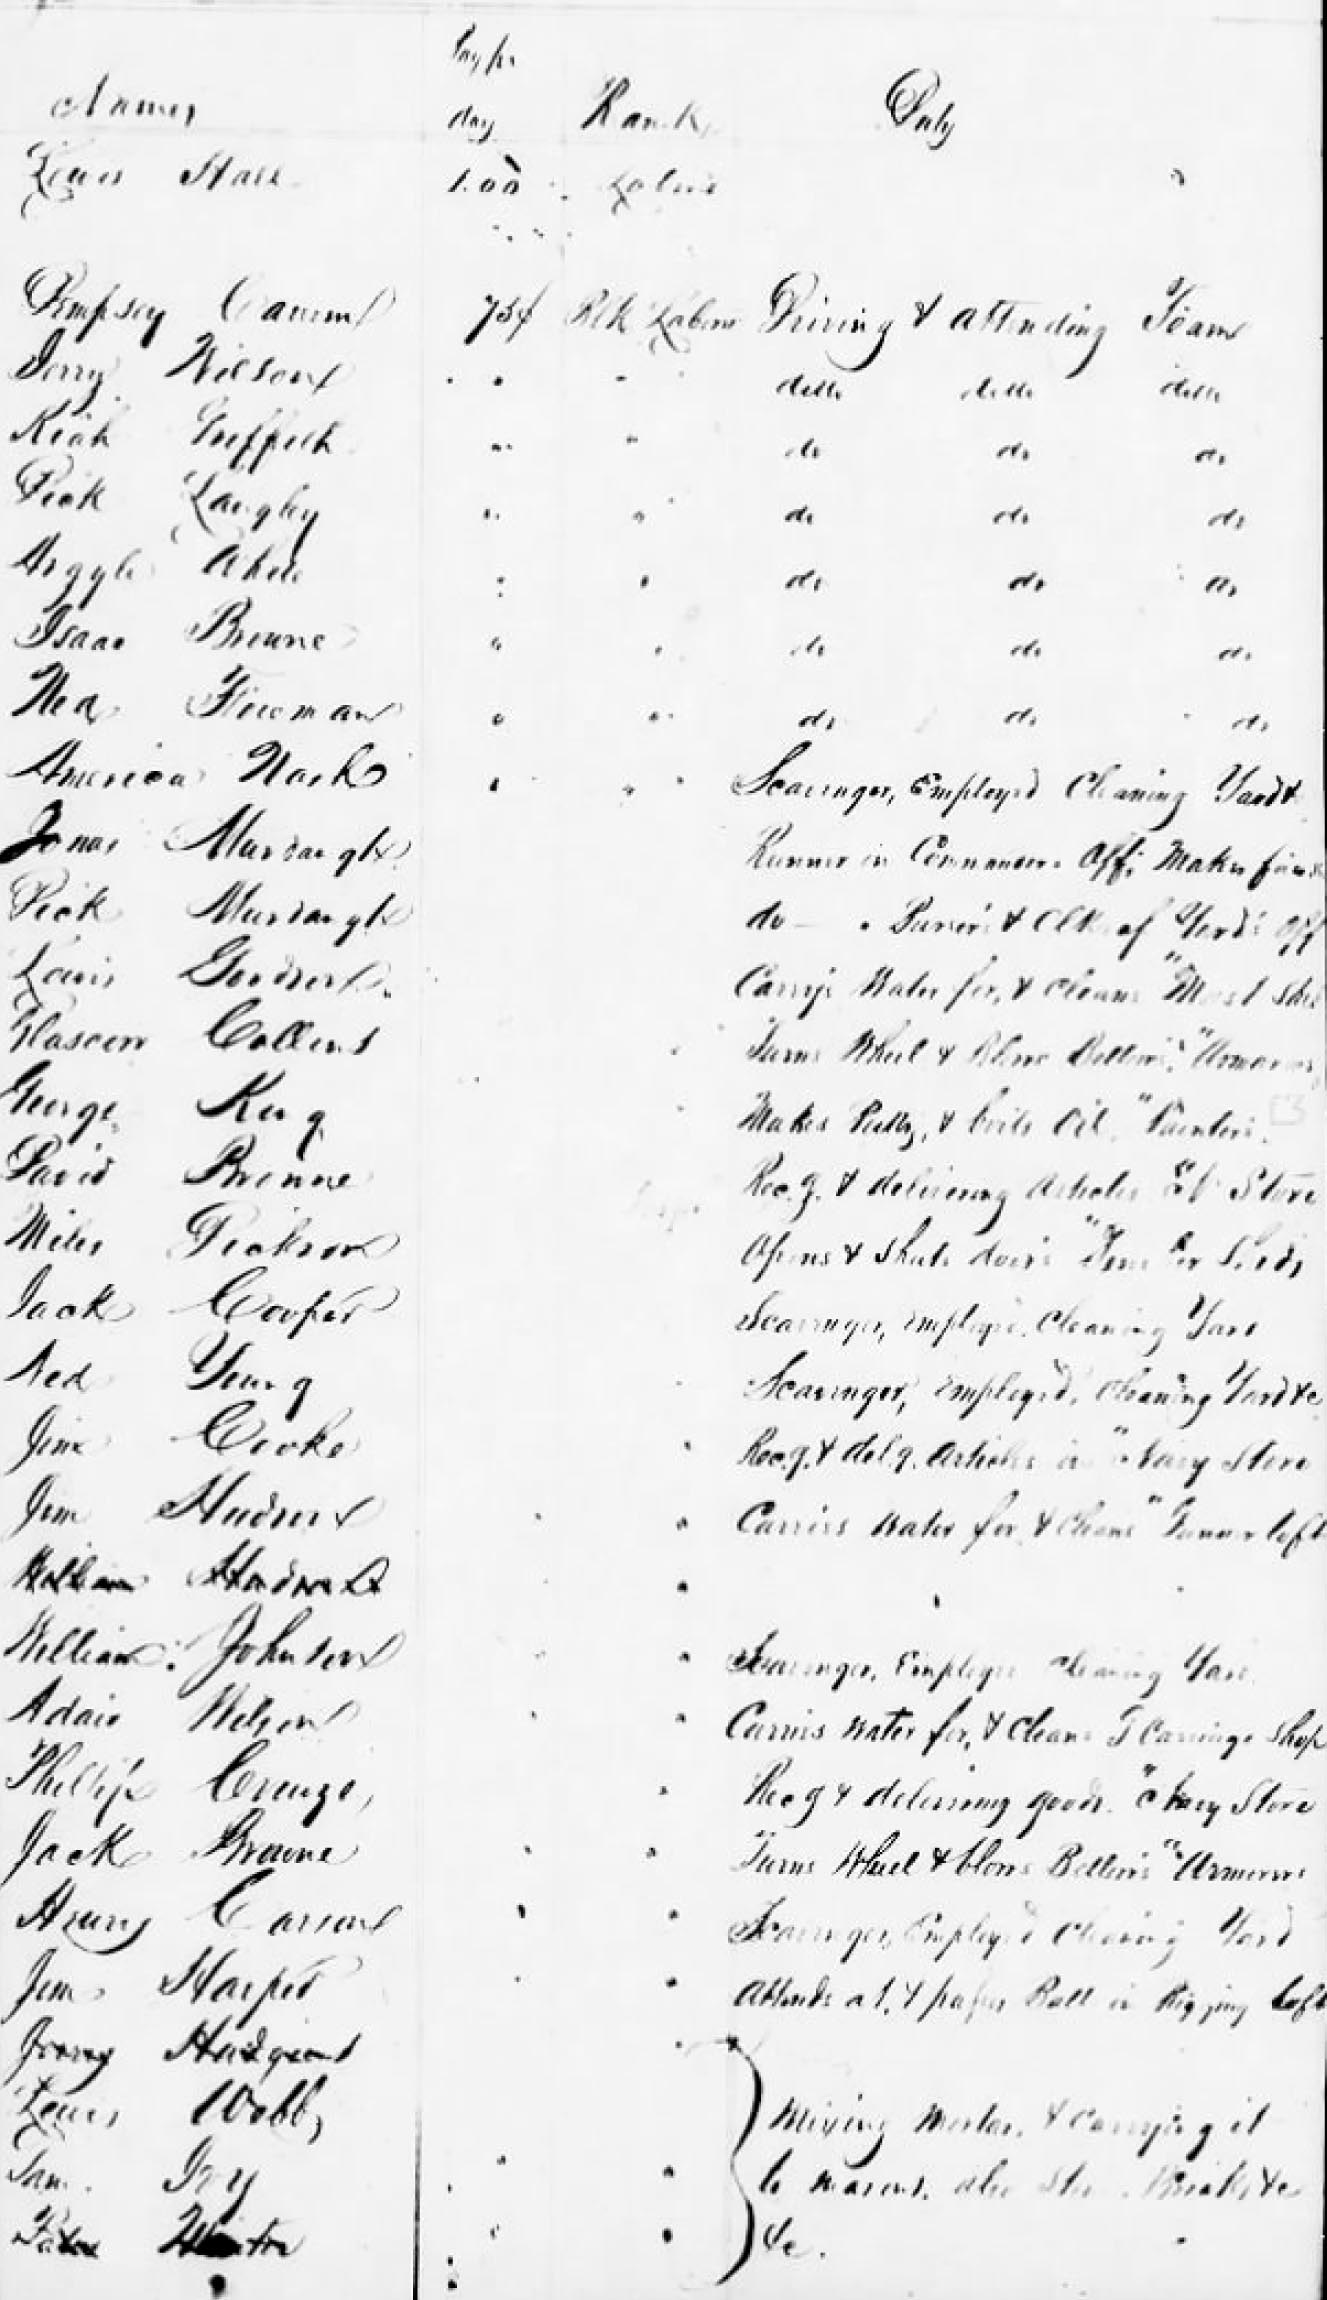 Pay pr
Names day Rank Duty
Lewis Hall 1.00 Labore
Dempsey 75¢ Blk Labore Driving & attending Team
Jerry Wilson " " ditto ditto ditto
Kiah Griffith " " do do do
Dick Langley " " do do do
Argyle " " do do do
Isaac Browne " " do do do
Ned Freeman " " do do do
America Nash " " Scavenger, Employed Cleaning Yard &
Jonas Murdaugh Runner in Commanders Off; Makes fires
Dick Murdaugh do - " Purser's & Clk of Yard's Off
Lewis Carrys Water for, & cleans " Mast Shed
Glascow Collens Turns Wheel & Blows Bellows, " Armorers
George King Makes Putty, & boils Oil, " Painters.
David Browne Rec.g. & delivering Articles Store
Miles Dickson Opens & Shuts doors " Sheds
Jack Cooper Scavenger, employd. Cleaning Yard
Ned Young Scavenger, employed, cleaning Yard &c
Jim Cooke " Rec.g. & del.g. Articles in " Navy Store
Jim " " Carries water for, & cleans " Gunner loft
William "
William Johnson " " Scavenger, Employd Cleaning Yard
Adam Wilson " " Carries water for, & cleans G Carriage Shop
Phillip Creuzo, " Rec g & delivering goods. " Navy Store
Jack Browne " " Turns Wheel & blows Bellows " Armorers
Henry Carson " " Scavenger, Employed Cleaning Yard
Jim Harper " " Attends at, & Ball in Rigging Loft
"
Lewis Webb, Mixing Mortar, & carrying it
Sam. Ivy " " to masons, also Bricks &c
" " &c.